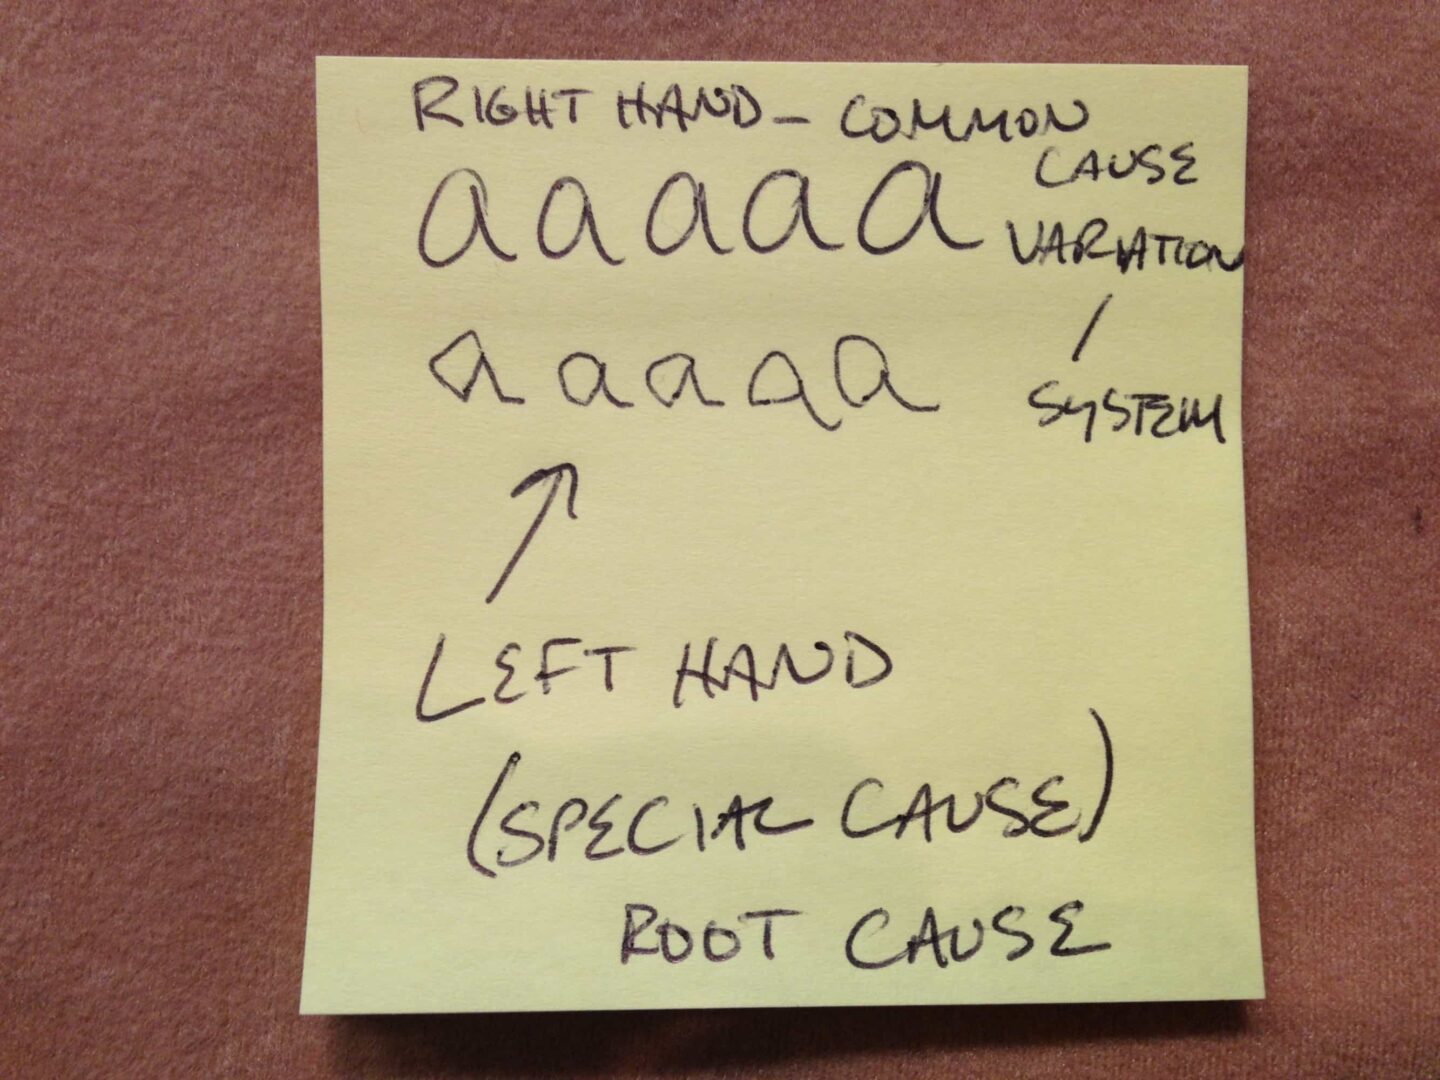 RIGHT HAND - COMMON
CAUSE
a a a a a VARIATION
a a a a a SYSTEM
LEFT HAND
(SPECIAL CAUSE)
ROOT CAUSE